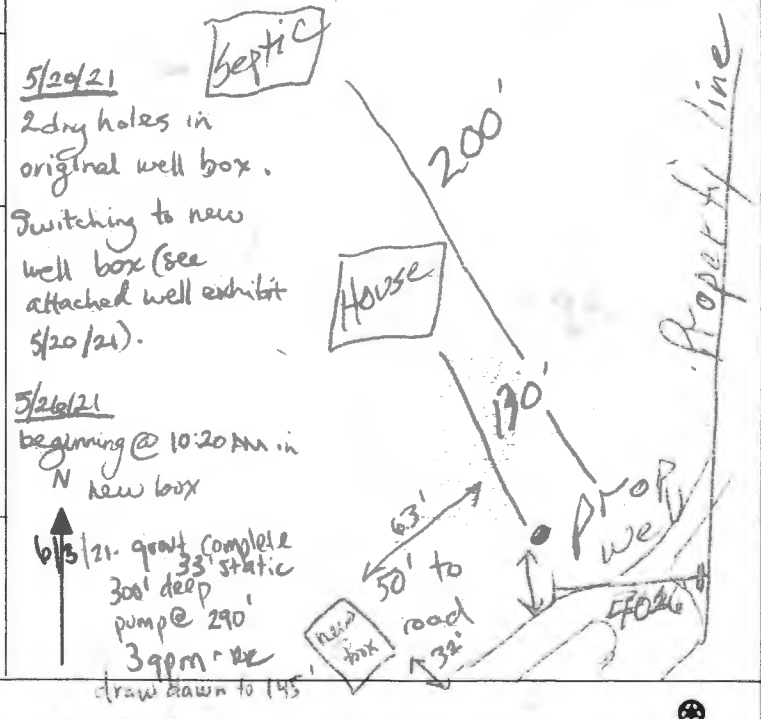 5/20/21
2 dry holes in
original well box.
Switching to new
well box (see
attached well exhibit
5/20/21).
5/26/21
beginning @ 10:20 AM in
new box
N
6/3/21. grout complete
33' static
300' deep
pump @ 290'
3gpm
draw down to 145'
Septic
200'
House
130'
Property line
prop
well
63'
50' to
road
32'
new
box